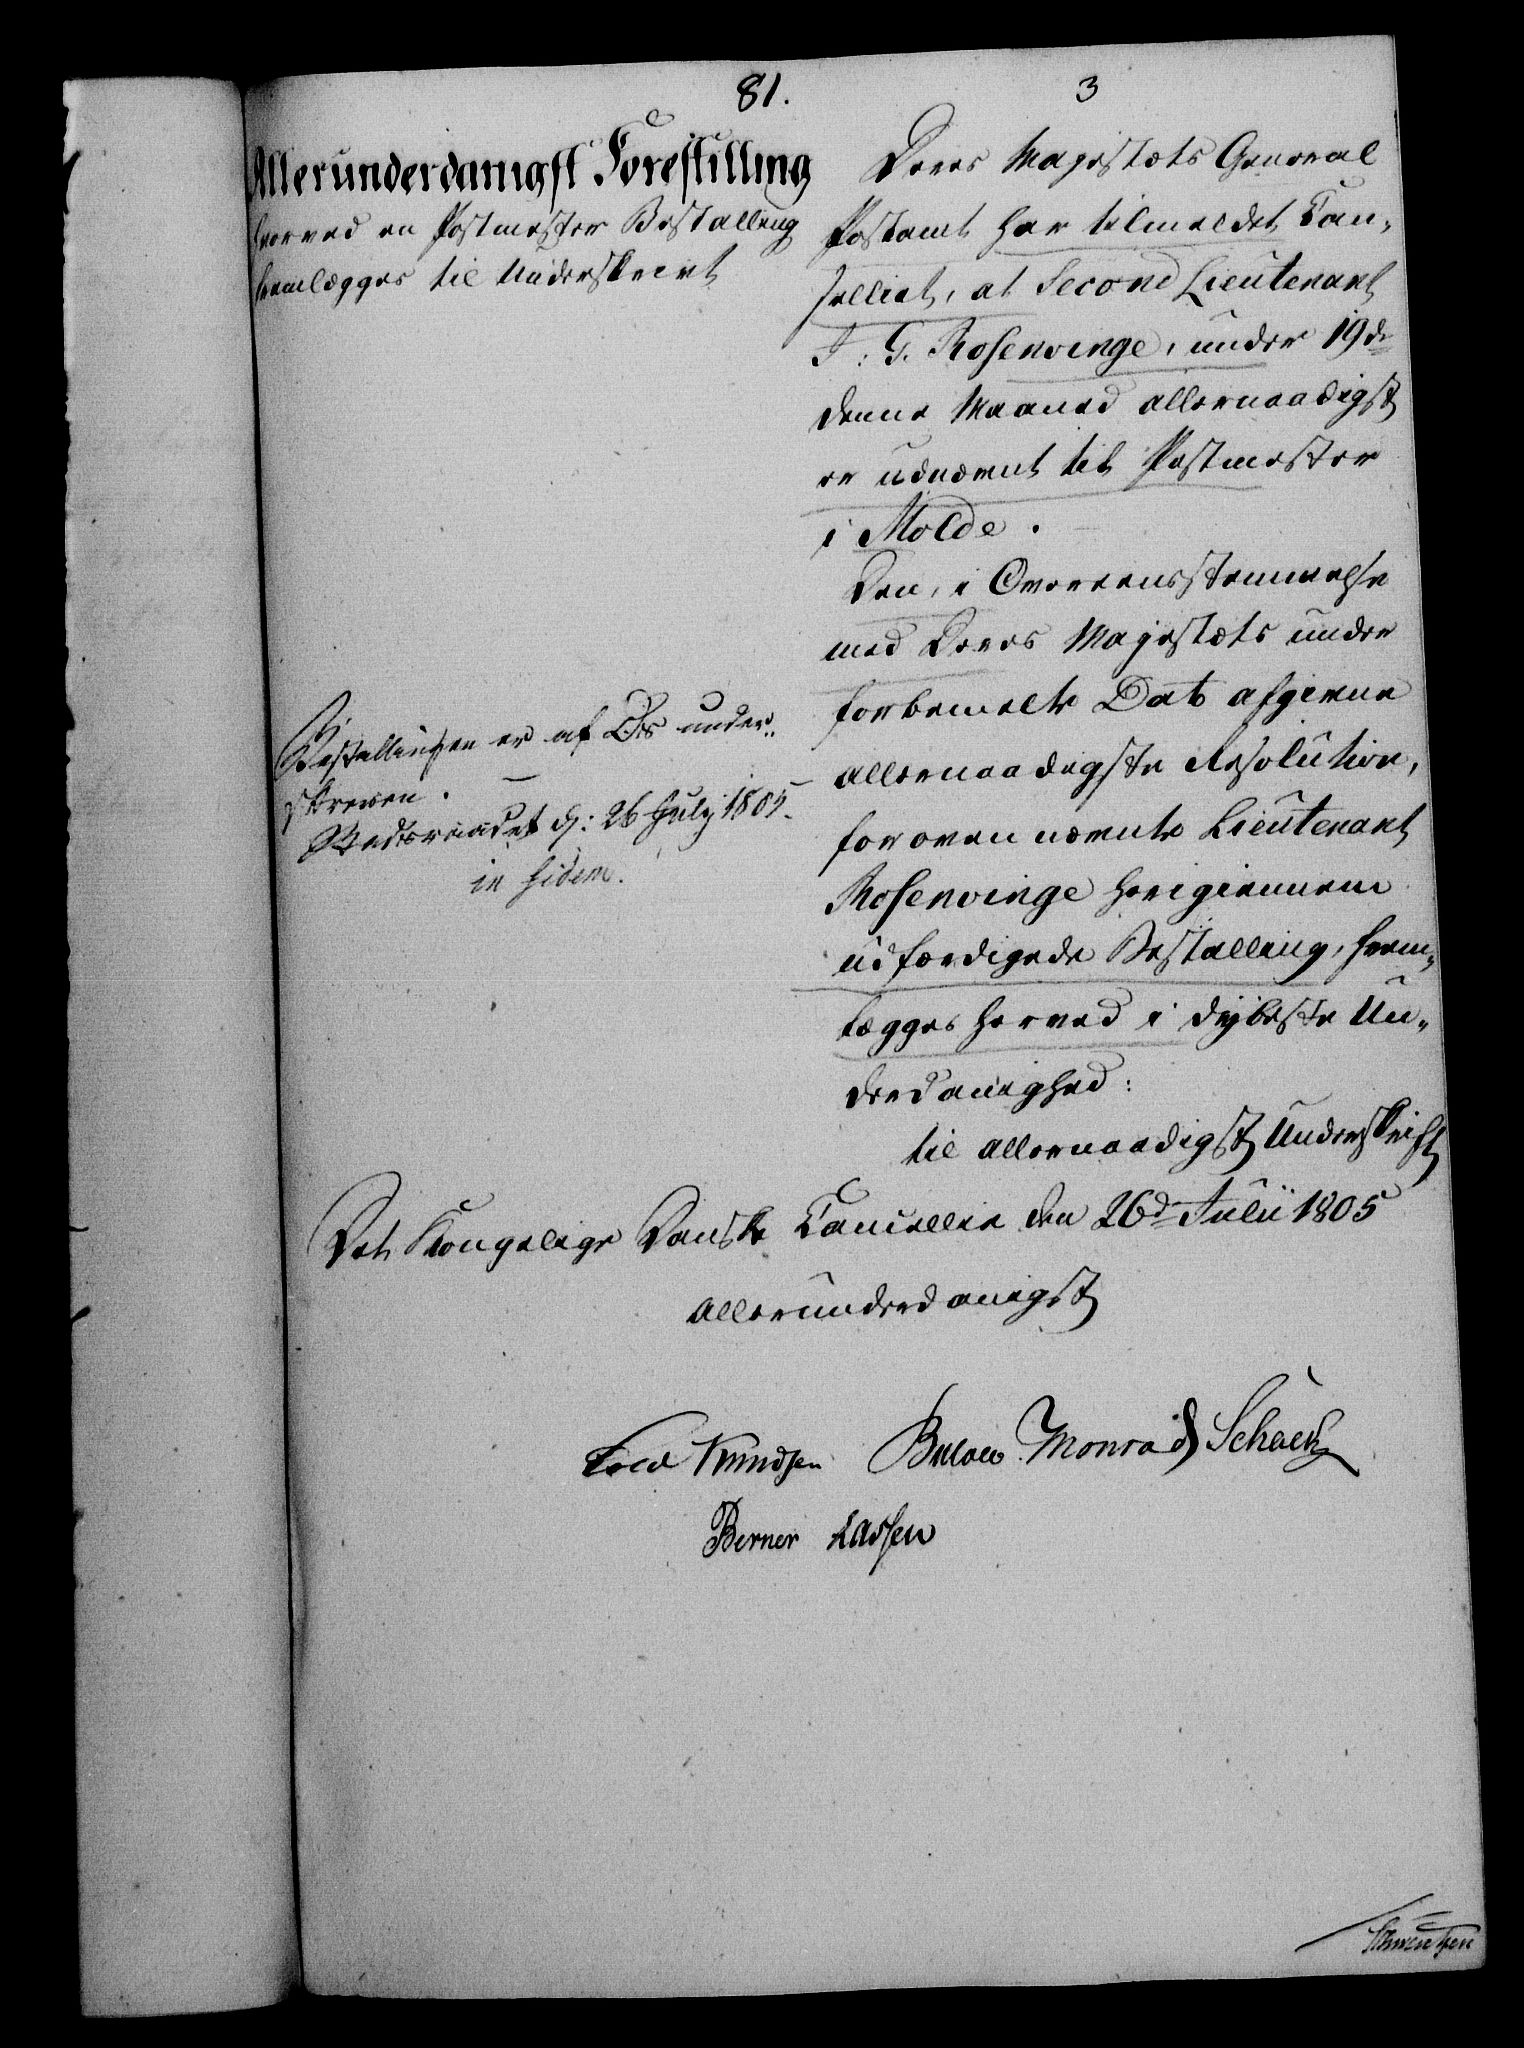 81.
3
Allerunderdanigst Forestilling
hvorved en Postmester Bestalling
fremlægges til Underskrivt
Deres Majestæts General
Postamt har tilmeldet Can-
celliet, at Second Lieutenant
J: G. Rosenvinge, under 19de
denne Maaned allernaadigst
er udnævnt til Postmester
i Molde.
Den, i Overeensstemmelse
med Deres Majestæts under
forbemelte Dato afgivne
allernaadigste Resolution,
for ovennævnte Lieutenant
Rosenvinge herigiennem
udfærdigede Bestalling, frem-
lægges herved i dybeste Un-
derdanighed:
til allernaadigst Underskrift
Bestallingen er af Os under-
skreven.
Stadsraadet d: 26 July 1805.
in fidem.
Det Kongelige Danske Cancellie den 26d Julii 1805
allerunderdanigst
Knudsen Bulow Monrad Schack
Berner Lassen